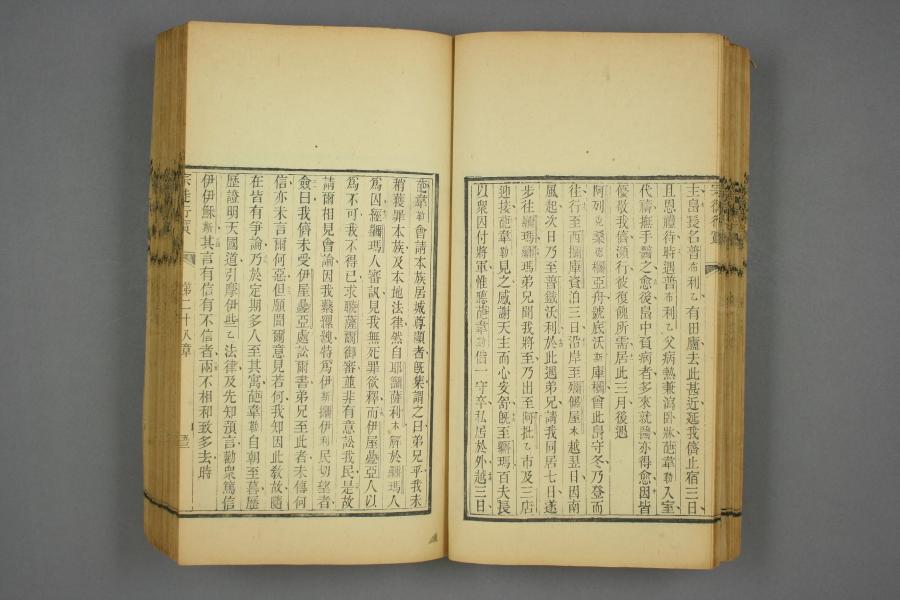 主島長名普布利乙有田廬去此甚近延我儕止宿三日
且恩禮待時適普布利乙父病熱兼瀉卧牀葩韋勒入室
代禱撫手醫之愈後島中負病者多來就醫亦得愈因皆
優敬我儕瀕行彼復餽所需居此三月後遇
阿列克桑亞舟號底沃斯庫爾曾此島守冬乃登而
往行至西庫資泊三日沿岸至屋越翌日因南
風起次日乃至普鐵沃利於此遇弟兄請我同居七日遂
步往瑪瑪弟兄聞我將至乃出至阿批乙市及三店
迎接葩韋勒見之感謝天主而心安舒旣至瑪百夫長
以衆囚付將軍惟聽葩韋勒偕一守卒私居於外越三日
葩韋勒會請本族居城尊顯者旣集謂之曰弟兄乎我未
稍獲罪本族及本地法律然自耶薩利木解於瑪人
爲囚經瑪人審訊見我無死罪欲釋而伊屋亞人以
爲不可我不得已求薩御審並非有意訟我民是故
請爾相見會論因我繫特爲伊斯伊利民切望者
僉曰我儕未受伊屋亞處訟爾書弟兄至此者未傳何
信亦未言爾何惡但願聞爾意見若何我知因此敎故隨
在皆有爭論乃於定期多人至其寓葩韋勒自朝至暮歷
歷證明天國道引摩伊些乙法律及先知預言勸衆篤信
伊伊穌斯其言有信有不信者兩不相和致多去時
宗徒行實
第二十八章